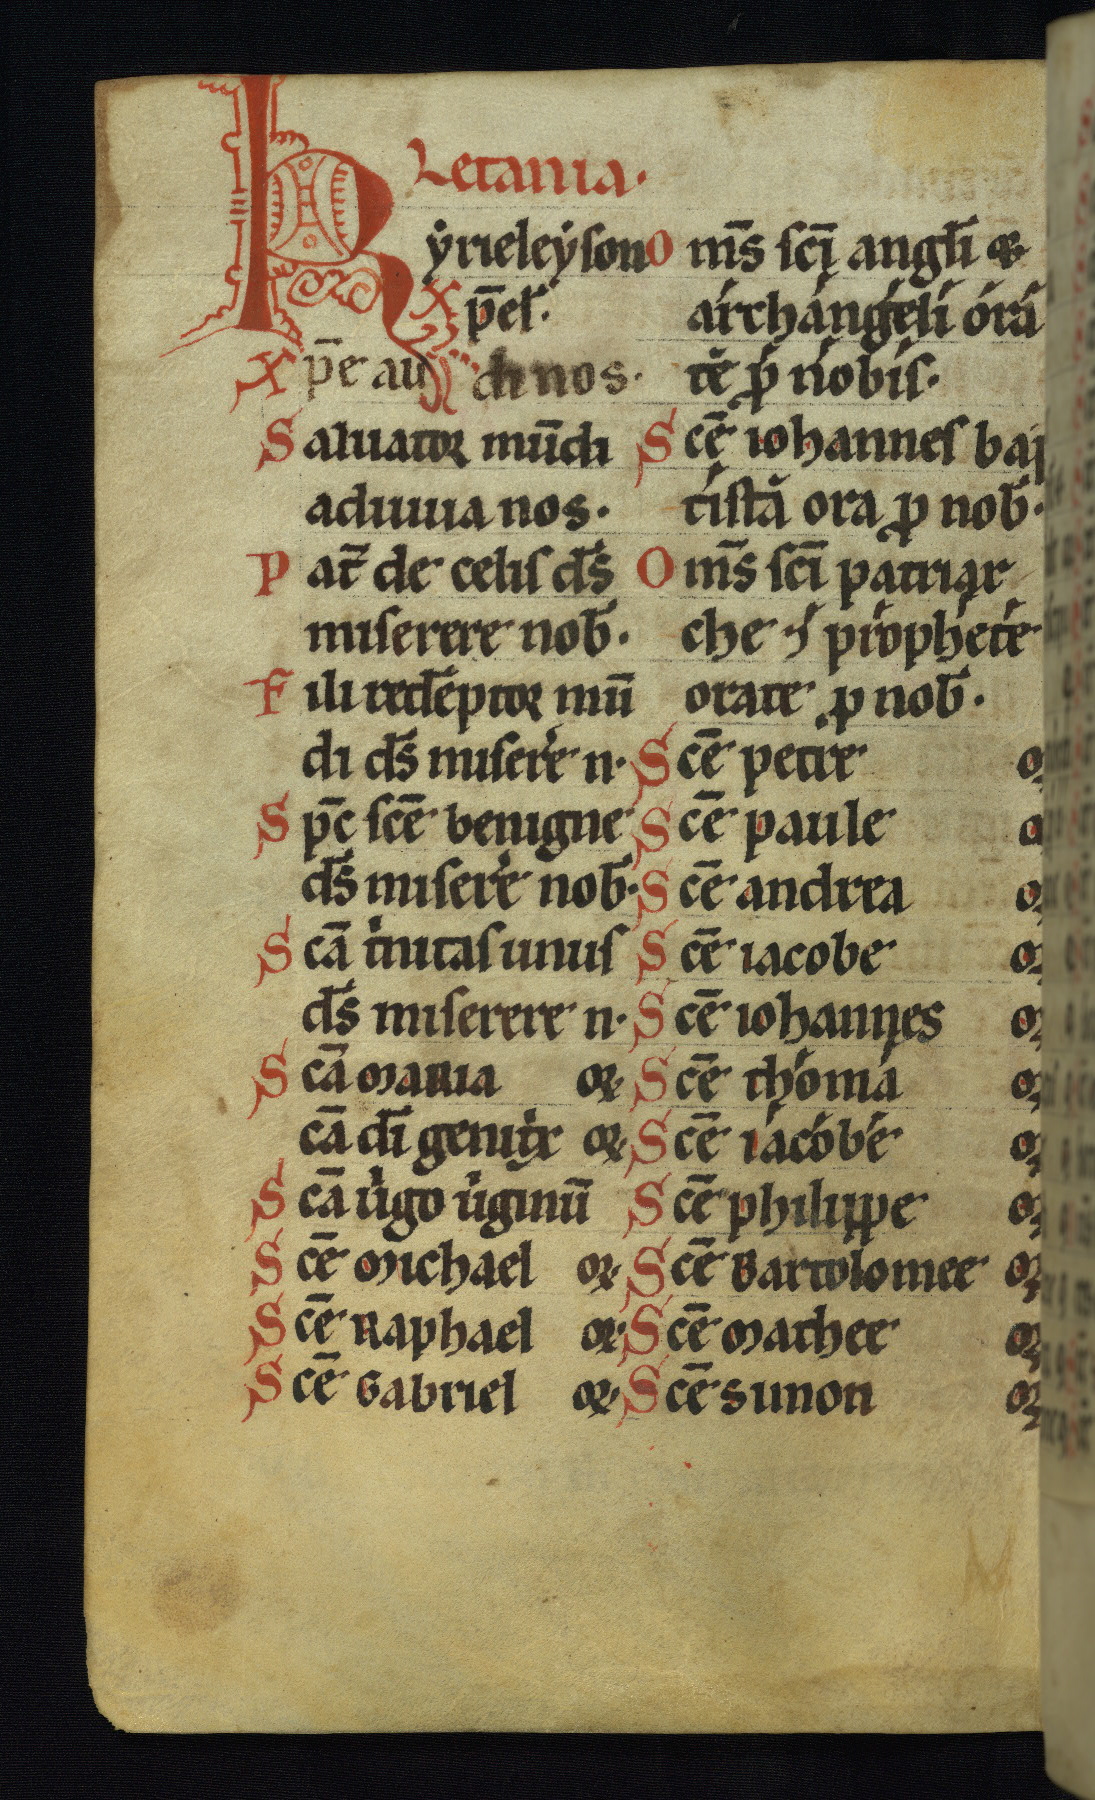 Letania.
Kẏrieleẏson
Xp̄el̄.
Xp̄e audi nos.
Saluator mūdi
adiuua nos.
Pat̄ de celis ds̄
miserere nob̄.
Fili redēptor mū
di ds̄ miserere n.
Sp̄c sc̄e benigne
ds̄ miserere nob̄.
Sc̄a tͥnitas unus
ds̄ miserere n.
Sc̄a maria or.
cā dī genitͥx or.
Sc̄a uͥgo uͥginū
Sc̄e Michael or.
Sc̄e Raphael or.
Sc̄e Gabriel or.
Om̄s sc̄i angl̄i &
archangeli ora
te ꝓ nobis.
Sc̄e iohannes bap
tista ora ꝓ nob̄.
Om̄s sc̄i patriar
che ⁊ prophete
orate ꝓ nob̄.
Sc̄e petre or
Sc̄e paule o
Sc̄e andrea or
Sc̄e iacobe or
Sc̄e iohannes or
Sc̄e thoma or
Sc̄e iacobe or
Sc̄e philippe or
Sc̄e Bartolomee or
Sc̄e Mathee or
Sc̄e Simon or